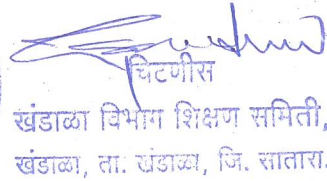 चिटणीस
खंडाळा विभाग शिक्षण समिती,
खंडाळा, ता. खंडाळा, जि. सातारा.